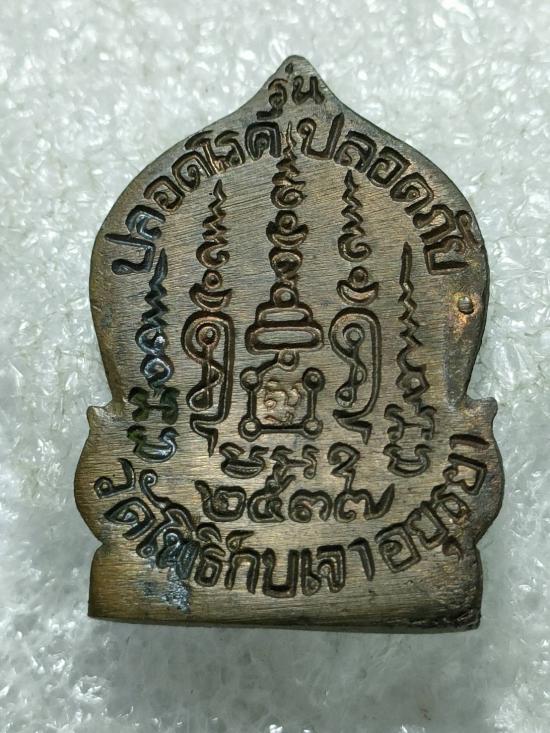 รุ่น
ปลอดโรค ปลอดภัย
๒๕๓๗
วัดโพธิ์กบเจา อยุธยา